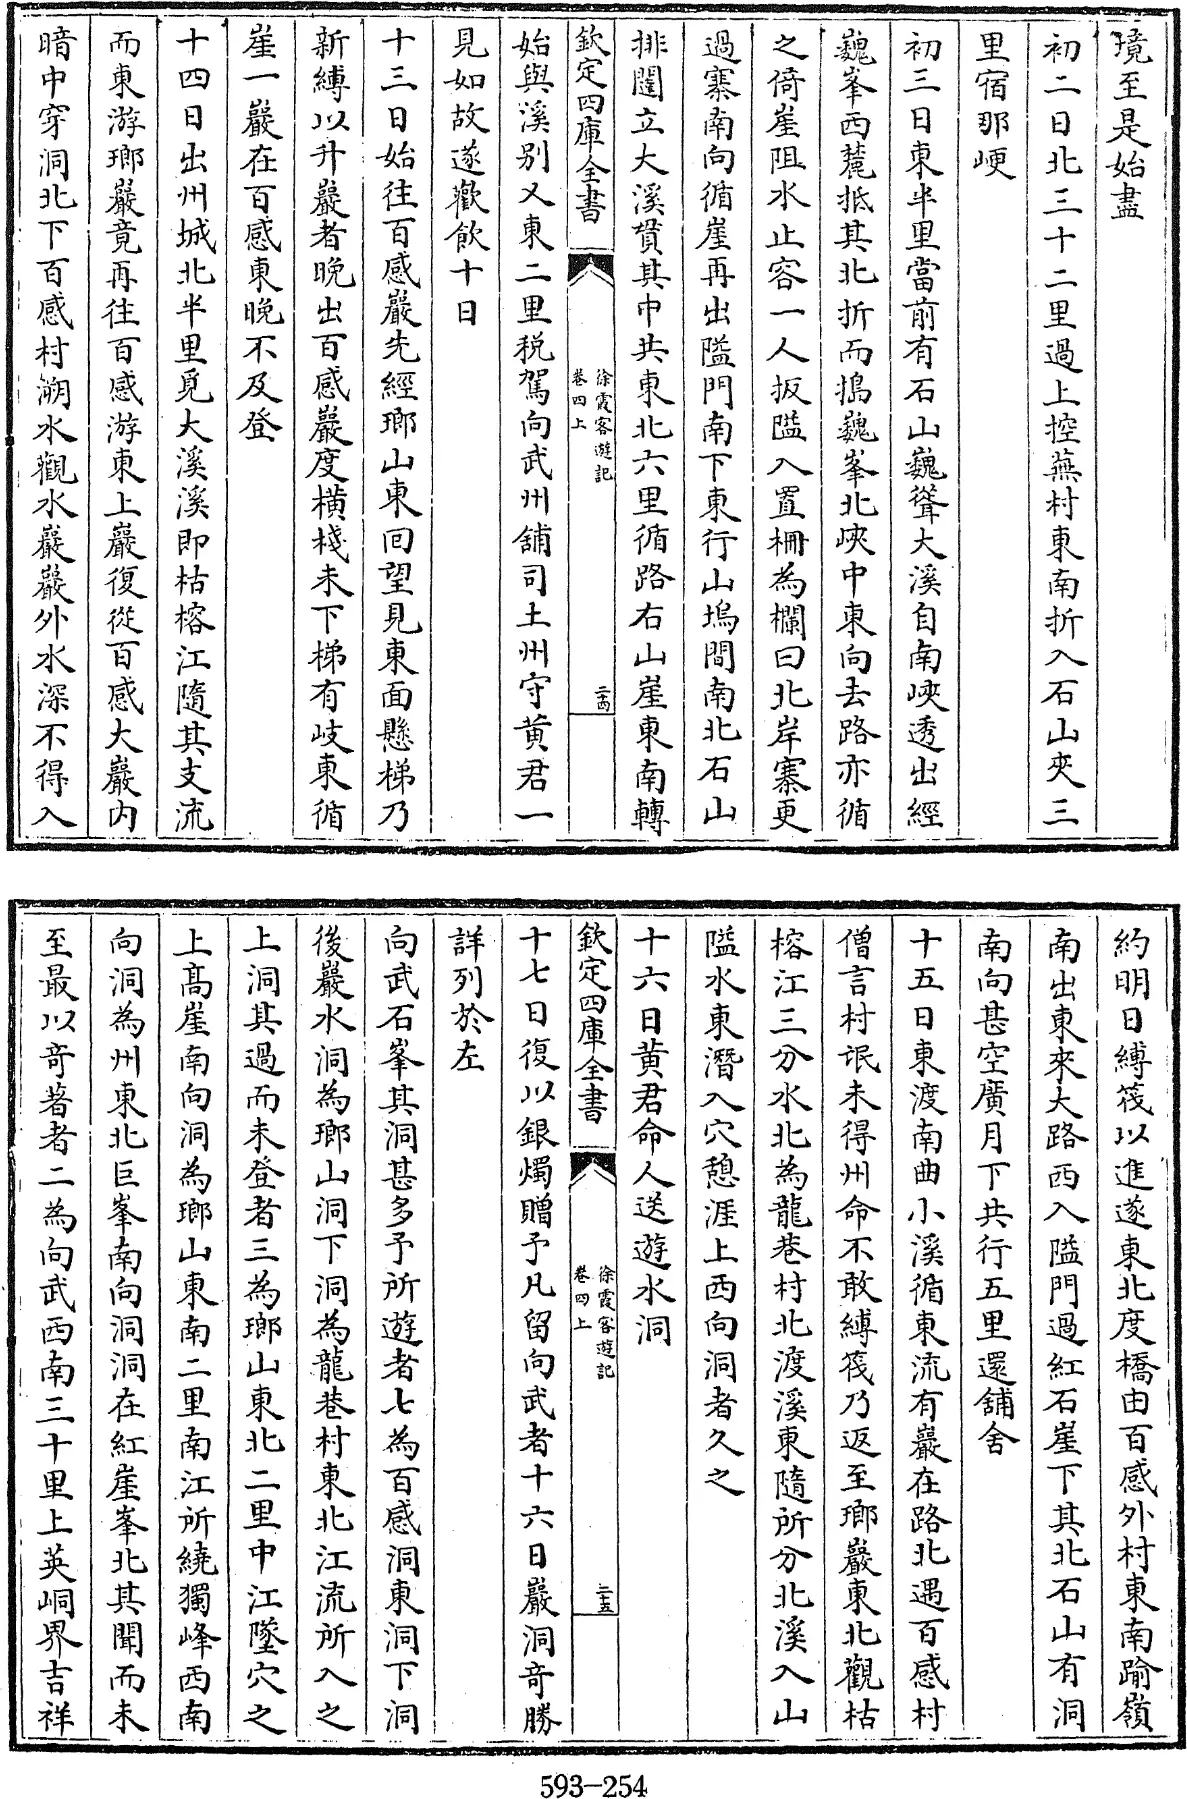 境至是始盡
初二日北三十二里過上控蕪村東南折入石山夾三
里宿那峺
初三日東半里當前有石山巍聳大溪自南峽透出經
巍峯西麓抵其北折而搗巍峯北峽中東向去路亦循
之倚崖阻水止容一人扳隘入置柵為欄曰北岸寨更
過寨南向循崖再出隘門南下東行山塢間南北石山
排闥立大溪貫其中共東北六里循路右山崖東南轉
欽定四庫全書
徐霞客遊記
卷四上
二十四
始與溪別又東二里稅駕向武州舖司土州守黃君一
見如故遂歡飲十日
十三日始往百感巖先經瑯山東回望見東面懸梯乃
新縛以升巖者晚出百感巖度橫棧未下梯有岐東循
崖一巖在百感東晚不及登
十四日出州城北半里覓大溪溪即枯榕江隨其支流
而東游瑯巖竟再往百感游東上巖復從百感大巖内
暗中穿洞北下百感村溯水觀水巖巖外水深不得入
約明日縛筏以進遂東北度橋由百感外村東南踰嶺
南出東來大路西入隘門過紅石崖下其北石山有洞
南向甚空廣月下共行五里還舖舍
十五日東渡南曲小溪循東流有巖在路北遇百感村
僧言村氓未得州命不敢縛筏乃返至瑯巖東北觀枯
榕江三分水北為龍巷村北渡溪東隨所分北溪入山
隘水東潛入穴憩涯上西向洞者久之
十六日黃君命人送遊水洞
欽定四庫全書
徐霞客遊記
卷四上
二十五
十七日復以銀燭贈予凡留向武者十六日巖洞奇勝
詳列於左
向武石峯其洞甚多予所遊者七為百感洞東洞下洞
後巖水洞為瑯山洞下洞為龍巷村東北江流所入之
上洞其過而未登者三為瑯山東北二里中江墜穴之
上高崖南向洞為瑯山東南二里南江所繞獨峰西南
向洞為州東北巨峯南向洞洞在紅崖峯北其聞而未
至最以奇著者二為向武西南三十里上英峒界吉祥
593-254